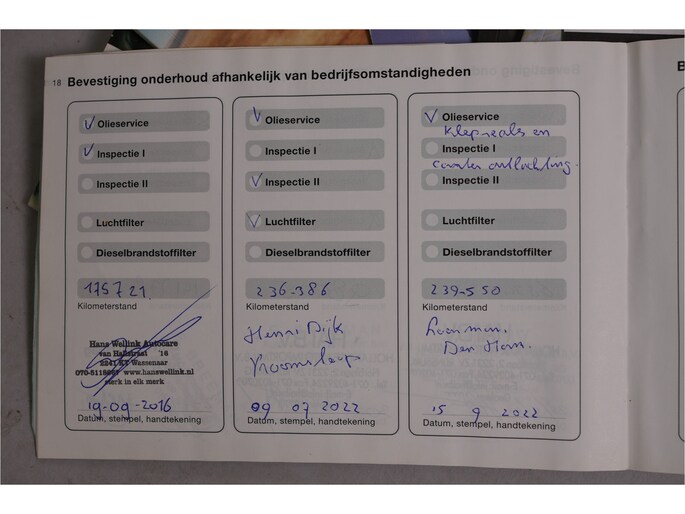 18 Bevestiging onderhoud afhankelijk van bedrijfsomstandigheden
Olieservice
Inspectie I
Inspectie II
Luchtfilter
Dieselbrandstoffilter
175721
Kilometerstand
Hans Wellink Autocare
van Hallstraat 16
2241 KT Wassenaar
www.hanswellink.nl
sterk in elk merk
19-09-2016
Datum, stempel, handtekening
Olieservice
Inspectie I
Inspectie II
Luchtfilter
Dieselbrandstoffilter
236-386
Kilometerstand
Henri Dijk
Vroomshoop
09 07 2022
Datum, stempel, handtekening
Olieservice
Klepseals en
Inspectie I
carter ontluchting.
Inspectie II
Luchtfilter
Dieselbrandstoffilter
239-550
Kilometerstand
Den Ham.
15 9 2022
Datum, stempel, handtekening
B